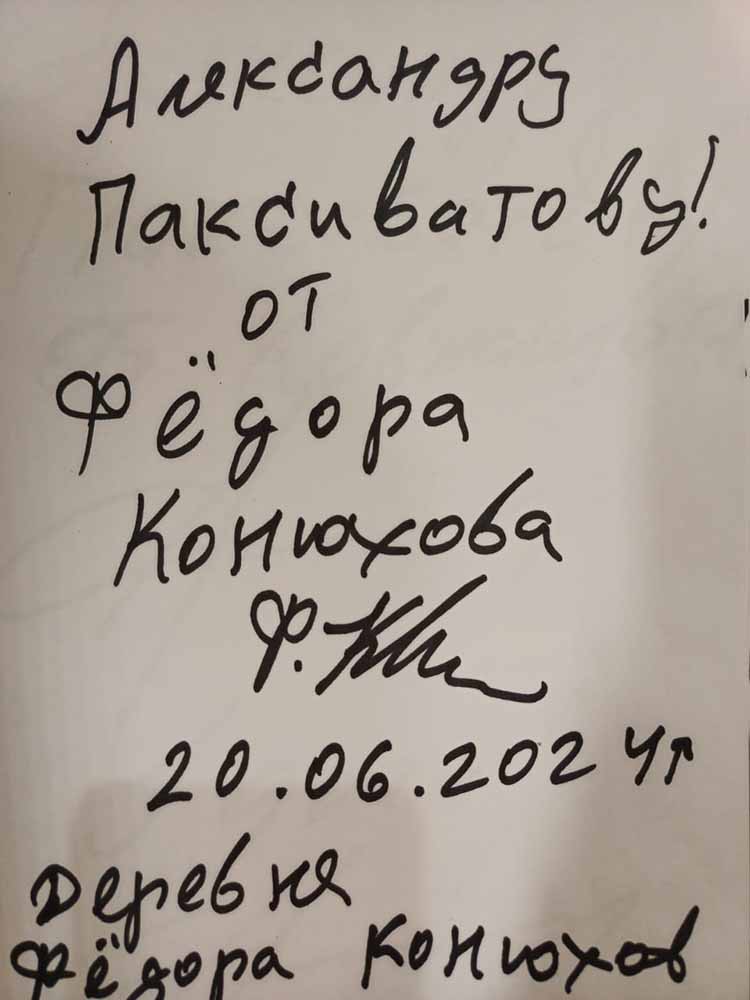 Александру
Паксиватову!
от
Фёдора
Конюхова
Ф. К
20.06.2024г
Деревня
Фёдора Конюхов